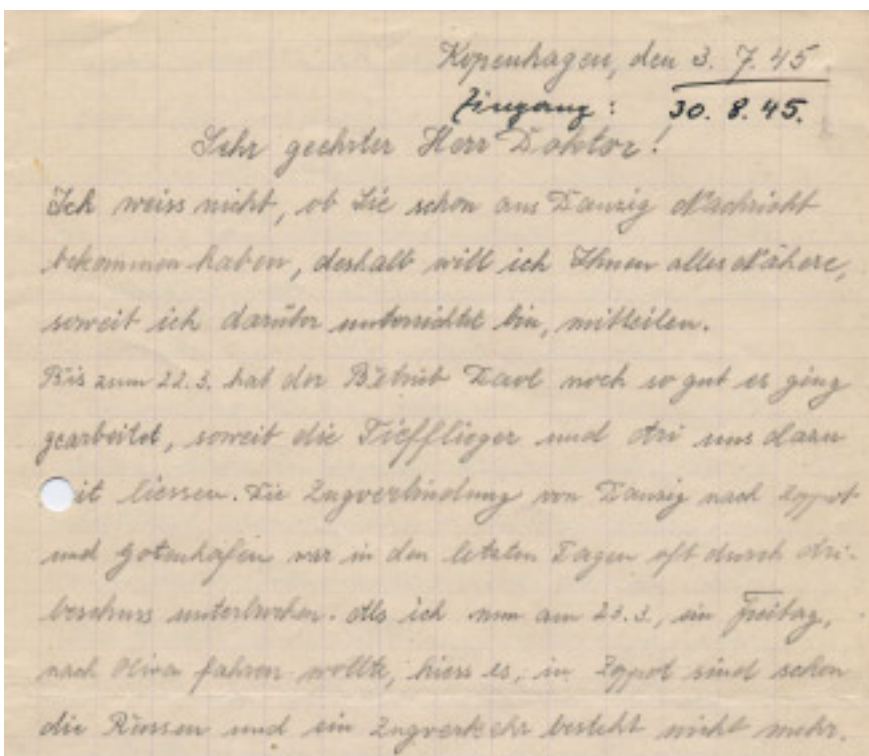 Kopenhagen, den 3. 7. 45
Eingang: 30. 8. 45.
Sehr geehrter Herr Doktor!
Ich weiss nicht, ob Sie schon aus Danzig Nachricht
bekommen haben, deshalb will ich Ihnen alles Nähere,
soweit ich darüber unterrichtet bin, mitteilen.
Bis zum 22.3. hat der Betrieb noch so gut es ging
gearbeitet, soweit die Tiefflieger und Ari uns dazu
it liessen. Die Zugverbindung von Danzig nach Zoppot
und Gotenhafen war in den letzten Tagen oft durch Ari-
beschuss unterbrochen. Als ich nun am 23.3., ein Freitag,
nach Oliva fahren wollte, hiess es, in Zoppot sind schon
die Russen und ein Zugverkehr besteht nicht mehr.